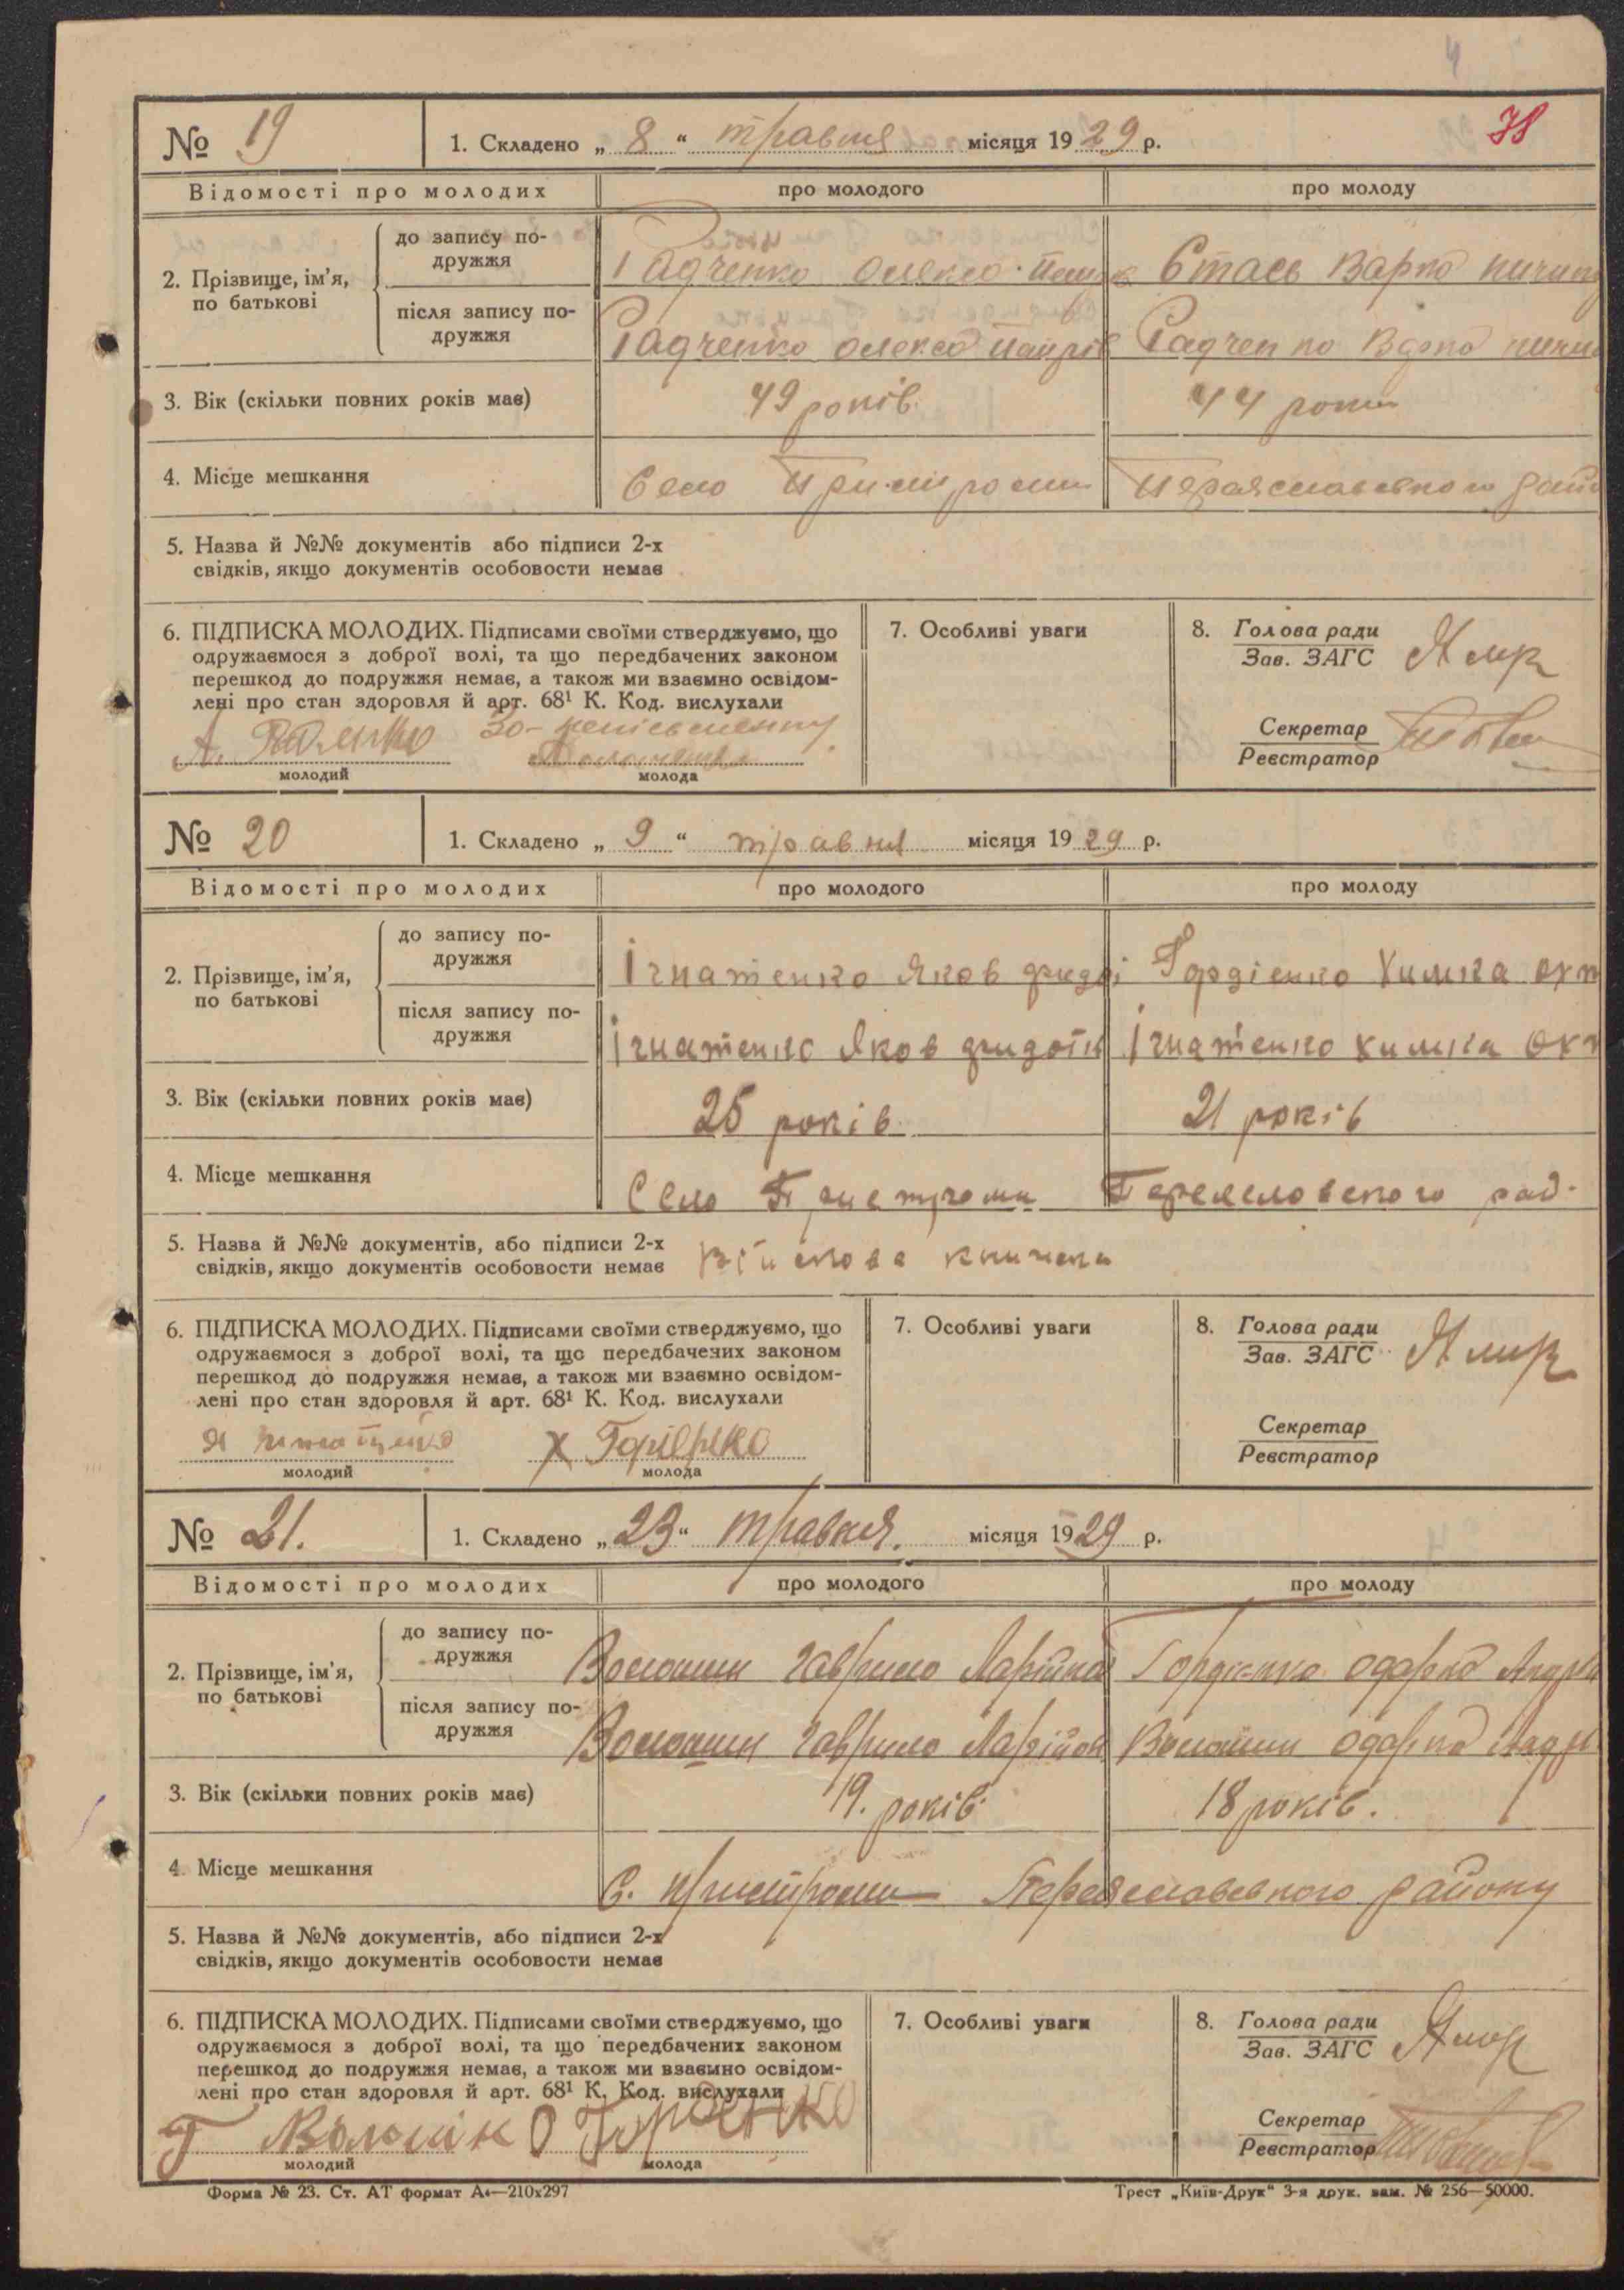 № 19 1. Складено „ 8 “ травня місяця 19 29 р. 78
Відомості про молодих про молодого про молоду
2. Прізвище, ім’я, по батькові
до запису подружжя Радченко Олекса Стась Варка
після запису подружжя Радченко Олекса Радченко Варка
3. Вік (скільки повних років має) 49 років 44 роки
4. Місце мешкання Село Пристроми Переяславського
5. Назва й №№ документів або підписи 2-х
свідків, якщо документів особовости немає
6. ПІДПИСКА МОЛОДИХ. Підписами своїми стверджуємо, що
одружаємося з доброї волі, та що передбачених законом
перешкод до подружжя немає, а також ми взаємно освідом-
лені про стан здоровля й арт. 68¹ К. Код. вислухали
А.
молодий молода
7. Особливі уваги
8. Голова ради
Зав. ЗАГС
Секретар
Реєстратор
№ 20 1. Складено „ 9 “ травня місяця 19 29 р.
Відомості про молодих про молодого про молоду
2. Прізвище, ім’я, по батькові
до запису подружжя Ігнатенко Яков Гордієнко Химка
після запису подружжя Ігнатенко Яков Ігнатенко Химка
3. Вік (скільки повних років має) 25 років 21 років
4. Місце мешкання Село
5. Назва й №№ документів, або підписи 2-х
свідків, якщо документів особовости немає Війскова книжка
6. ПІДПИСКА МОЛОДИХ. Підписами своїми стверджуємо, що
одружаємося з доброї волі, та що передбачених законом
перешкод до подружжя немає, а також ми взаємно освідом-
лені про стан здоровля й арт. 68¹ К. Код. вислухали
молодий молода
7. Особливі уваги
8. Голова ради
Зав. ЗАГС
Секретар
Реєстратор
№ 21. 1. Складено „ 23 “ травня. місяця 19 29 р.
Відомості про молодих про молодого про молоду
2. Прізвище, ім’я, по батькові
до запису подружжя Волошин Гаврило Гордієнко Одарка
після запису подружжя Волошин Гаврило Ларійон Волошин Одарка
3. Вік (скільки повних років має) 19. років 18 років.
4. Місце мешкання С. Пристроми Переяславського району
5. Назва й №№ документів, або підписи 2-х
свідків, якщо документів особовости немає
6. ПІДПИСКА МОЛОДИХ. Підписами своїми стверджуємо, що
одружаємося з доброї волі, та що передбачених законом
перешкод до подружжя немає, а також ми взаємно освідом-
лені про стан здоровля й арт. 68¹ К. Код. вислухали
Г
молодий молода
7. Особливі уваги
8. Голова ради
Зав. ЗАГС
Секретар
Реєстратор
Форма № 23. Ст. АТ формат А₄—210x297 Трест „Київ-Друк“ 3-я друк. зам. № 256—50000.